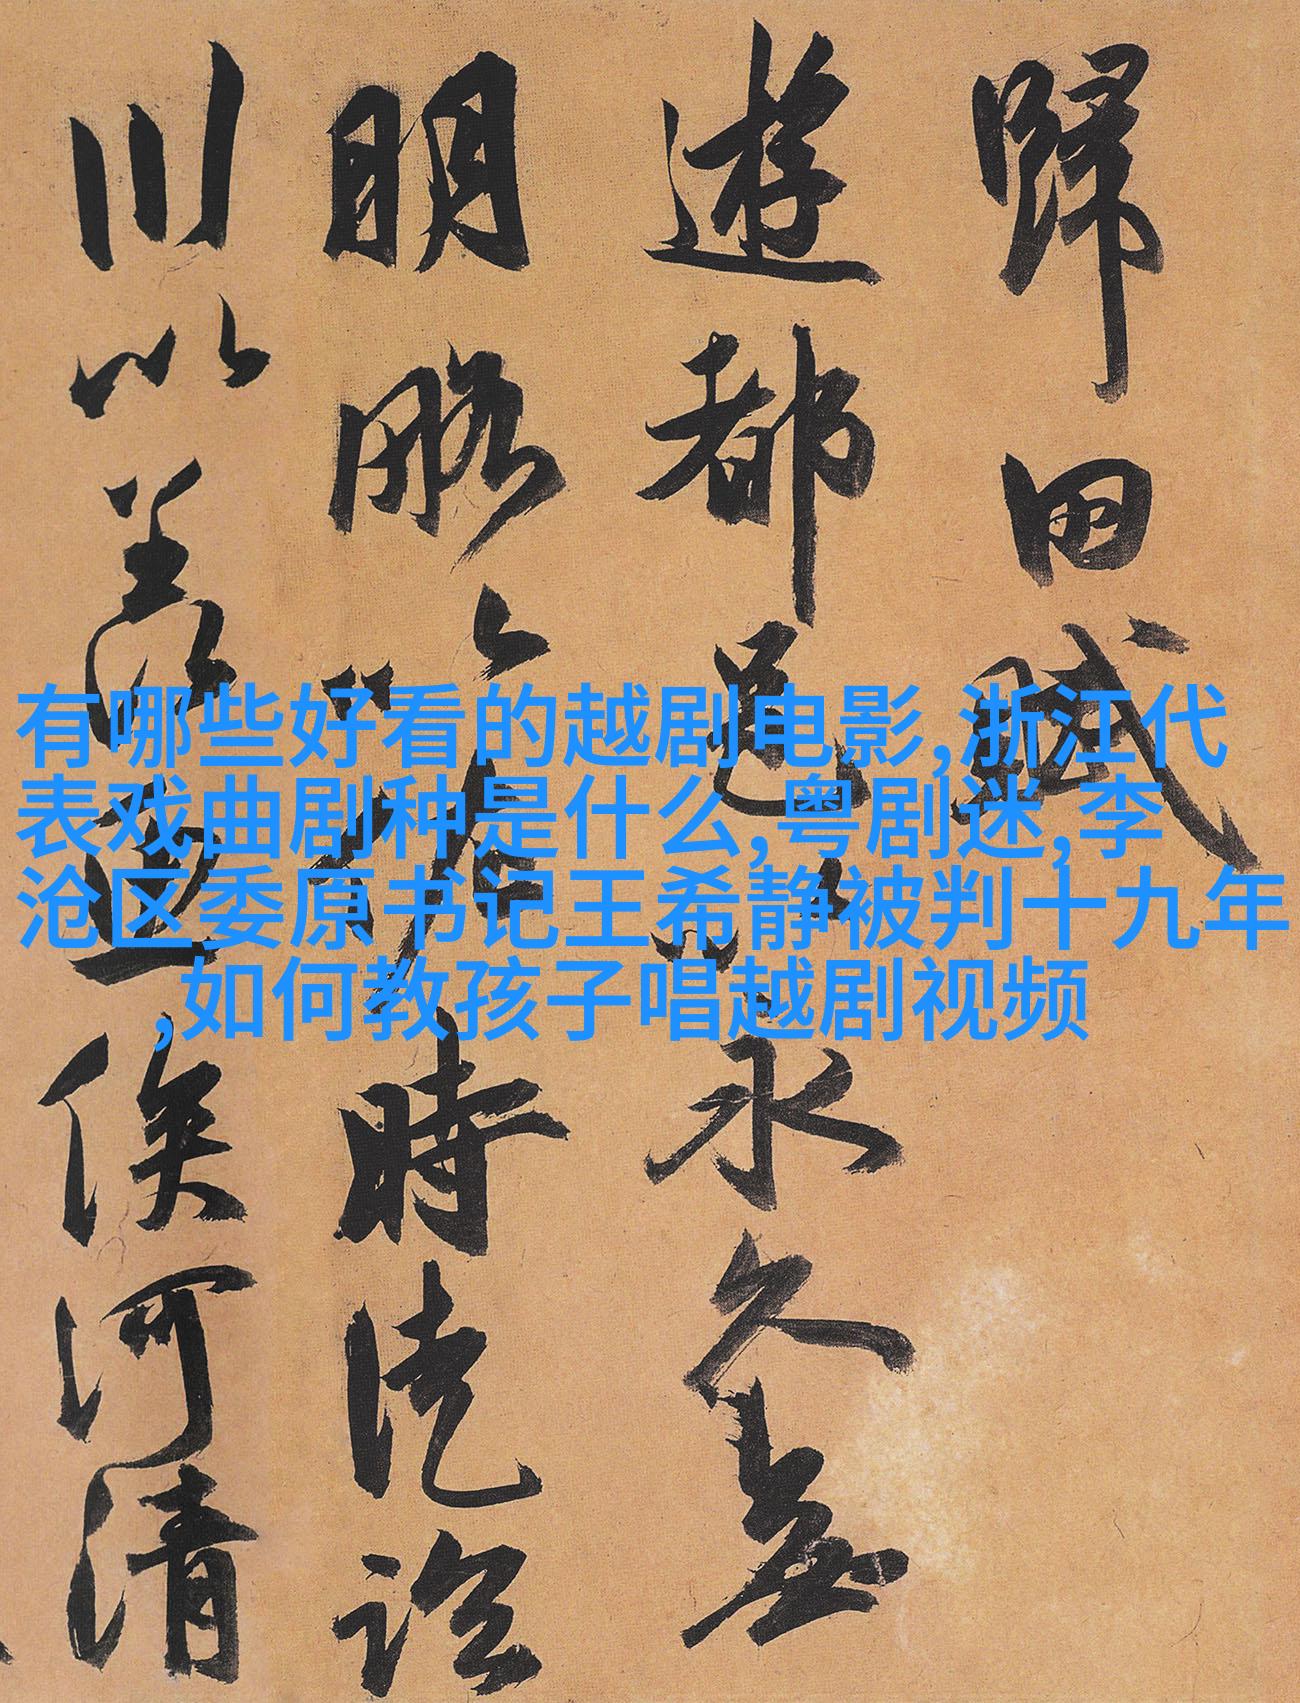 歸田賦
遊都邑以永久無
明略以佐時徒臨
川以羨魚俟河清
有哪些好看的越剧电影,浙江代
表戏曲剧种是什么,粤剧迷,李
沧区委原书记王希静被判十九年
,如何教孩子唱越剧视频